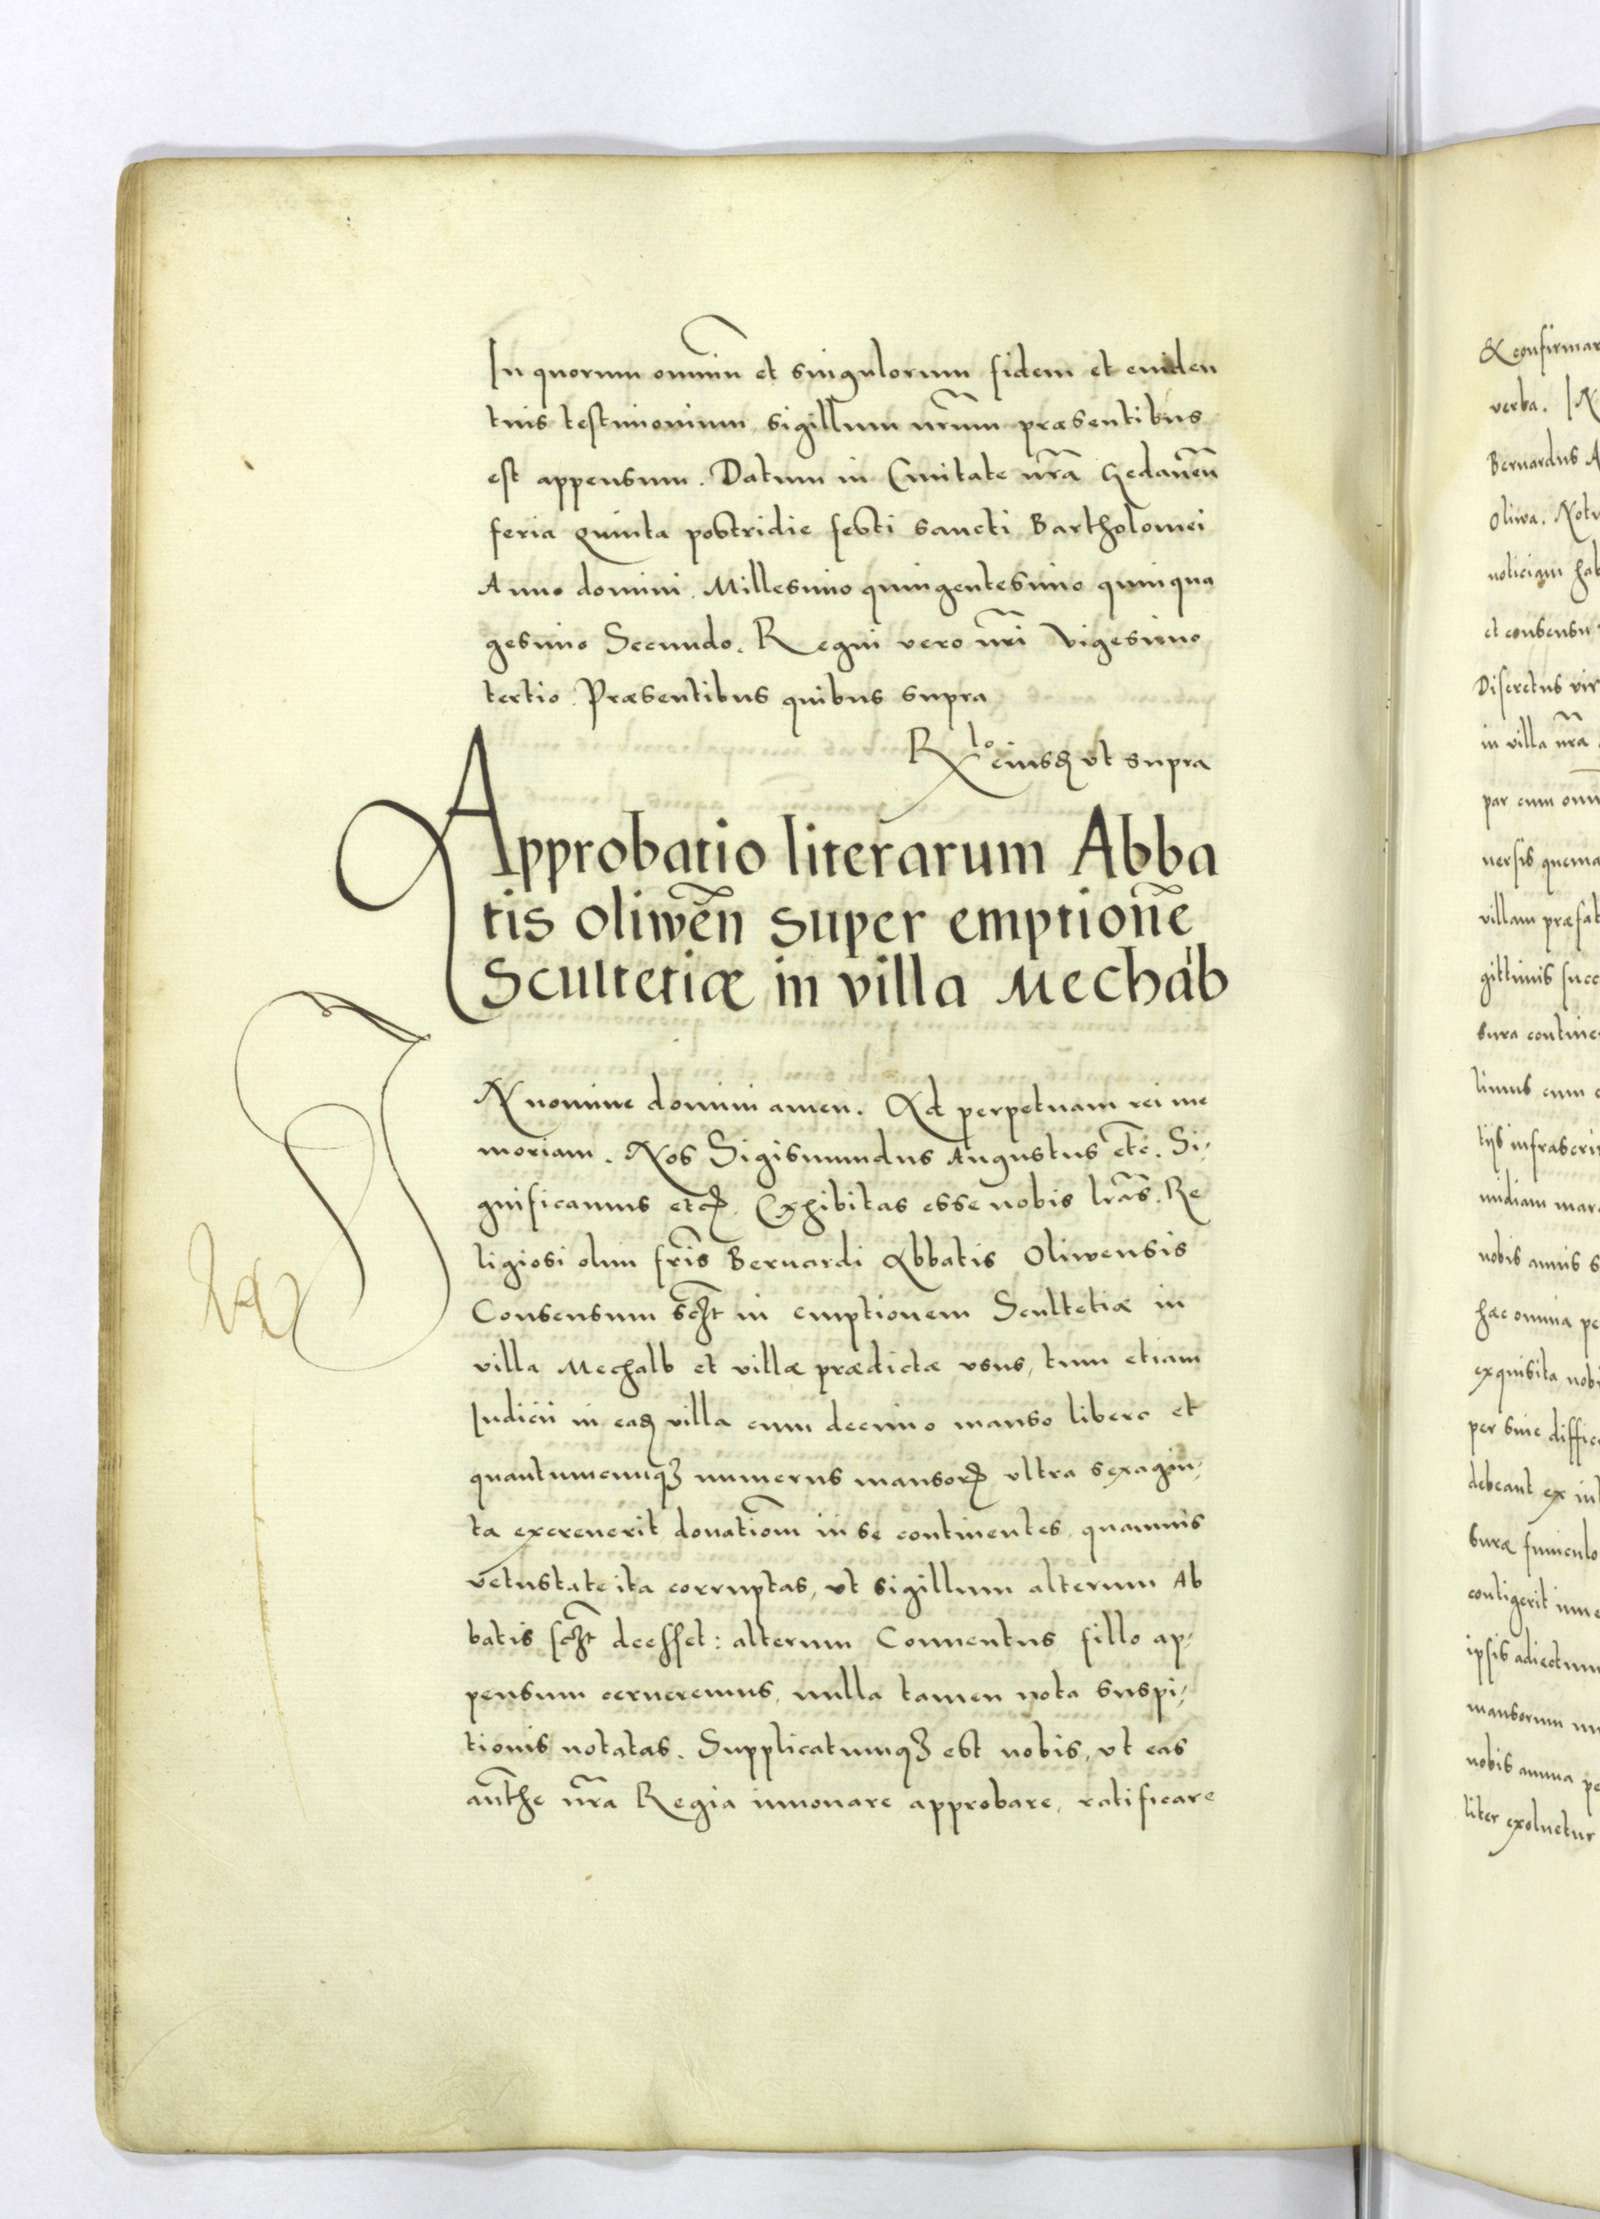 In quorum omniũ et singulorum fidem et euiden
tius testimonium sigillum nr̃um præsentibus
est appensum. Datum in Ciuitate nr̃a Gedaneñ
feria quinta postridie festi sancti Bartholomei
Anno domini Millesimo quingentesimo quinqua
gesimo Secundo. Regni vero nr̃i vigesimo
tertio. Præsentibus quibus supra
R̃lo eiusd ut supra
Approbatio literarum Abba
tis Oliweñ super emptionẽ
Scultetiæ in villa Mechalb
IN nomine domini amen. Ad perpetuam rei me
moriam. Nos Sigismundus Augustus etc̃. Si,
gnificamus etc. Exhibitas esse nobis lr̃as. Re
ligiosi olim fr̃is Bernardi Abbatis Oliwensis
Consensum sczt̃ in emptionem Scultetiæ in
villa Mechalb et villæ prædictæ vsus, tum etiam
Iudicii in ead villa cum decimo manso libero et
quantumcunqʒ numerus mansoꝝ vltra sexagin,
ta excreuerit donatiom̃ in se continentes, quamuis
vetustate ita corruptas, vt sigillum alterum Ab
batis sczt̃ deesset: alterum Conuentus fillo ap,
pensum cerneremus, nulla tamen nota suspi,
tionis notatas. Supplicatumqʒ est nobis, vt eas
aut̃he nr̃a Regia innouare approbare, ratificare
& confirmar
verba. IN
Bernardus A
Oliwa. Notu
noticiam hab
et consensu
Discretus vir
in villa nr̃a
par cum omn
uersis quema
villam præfat
gittimis succ
sura contine
limus cum
tijs infrascri
midiam mar
nobis annis s
hæc omnia pe
exquisita nobi
per sine diffic
debeant ex int
suræ funiculo
contigerit inue
ipsis adiectum
mansorum nu
nobis annua pe
liter exoluetur